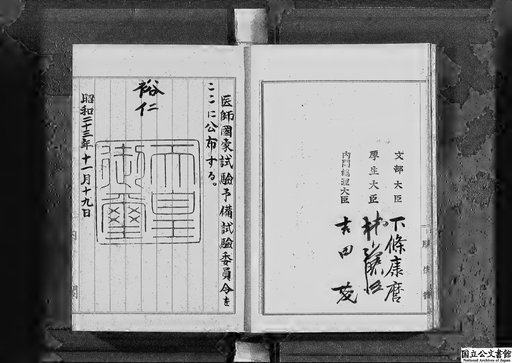 文部大臣 下條康麿
厚生大臣 林譲治
内閣總理大臣 吉田茂
医師國家試驗予備試驗委員令を
ここに公布する。
裕仁
天皇
御璽
昭和二十三年十一月十九日
内閣
国立公文書館
National Archives of Japan